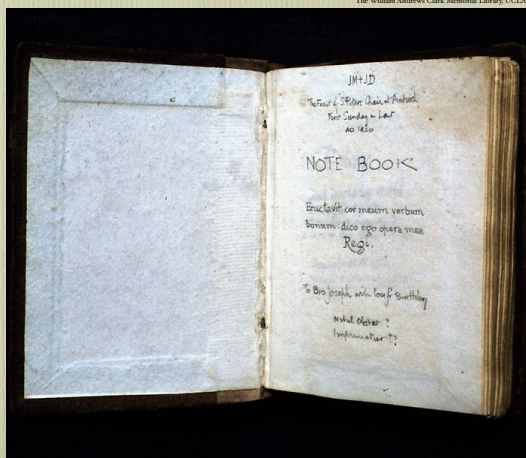 The William Andrews Clark Memorial Library, UCLA
JM+JD
The Feast of S. Peter's Chair at Antioch
First Sunday in Lent
AD 1920
NOTE BOOK
Eructavit cor meum verbum
bonum: dico ego opera mea
Regi.
To Bro Joseph with love for Birthday
Nihil Obstat ?
Imprimatur ??